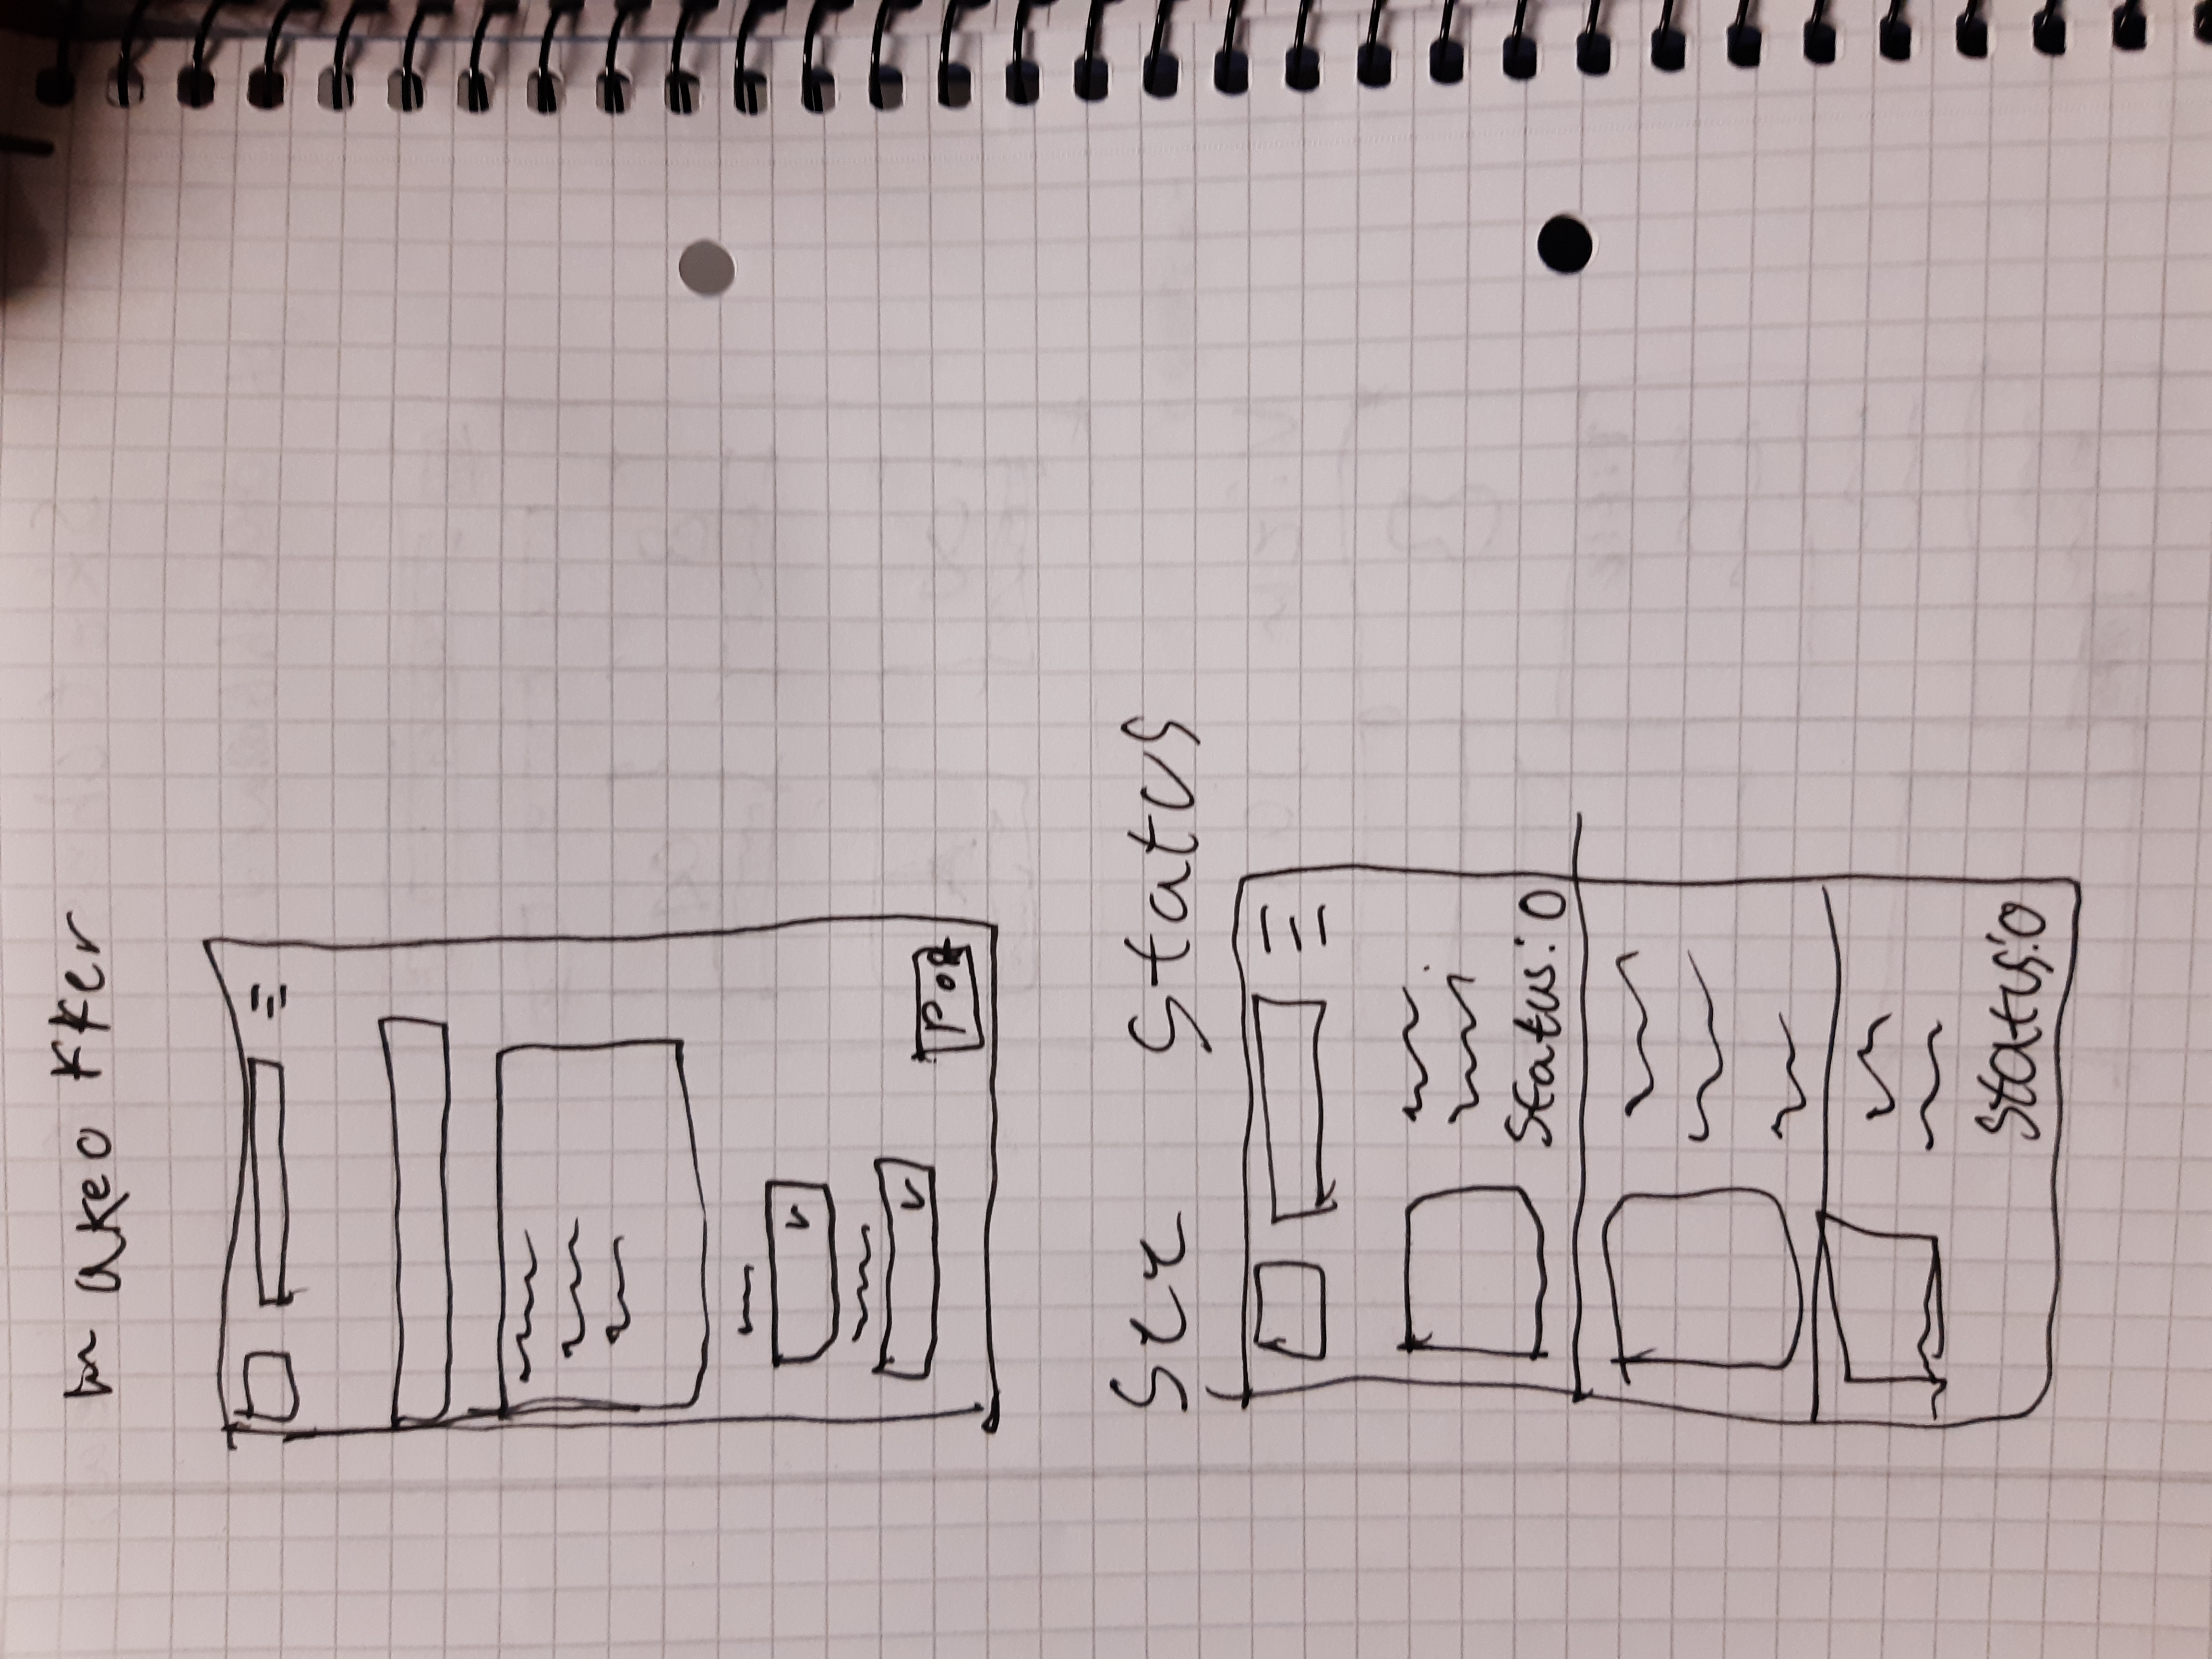 make okker
Post
See Status
Status: 0
Status: 0